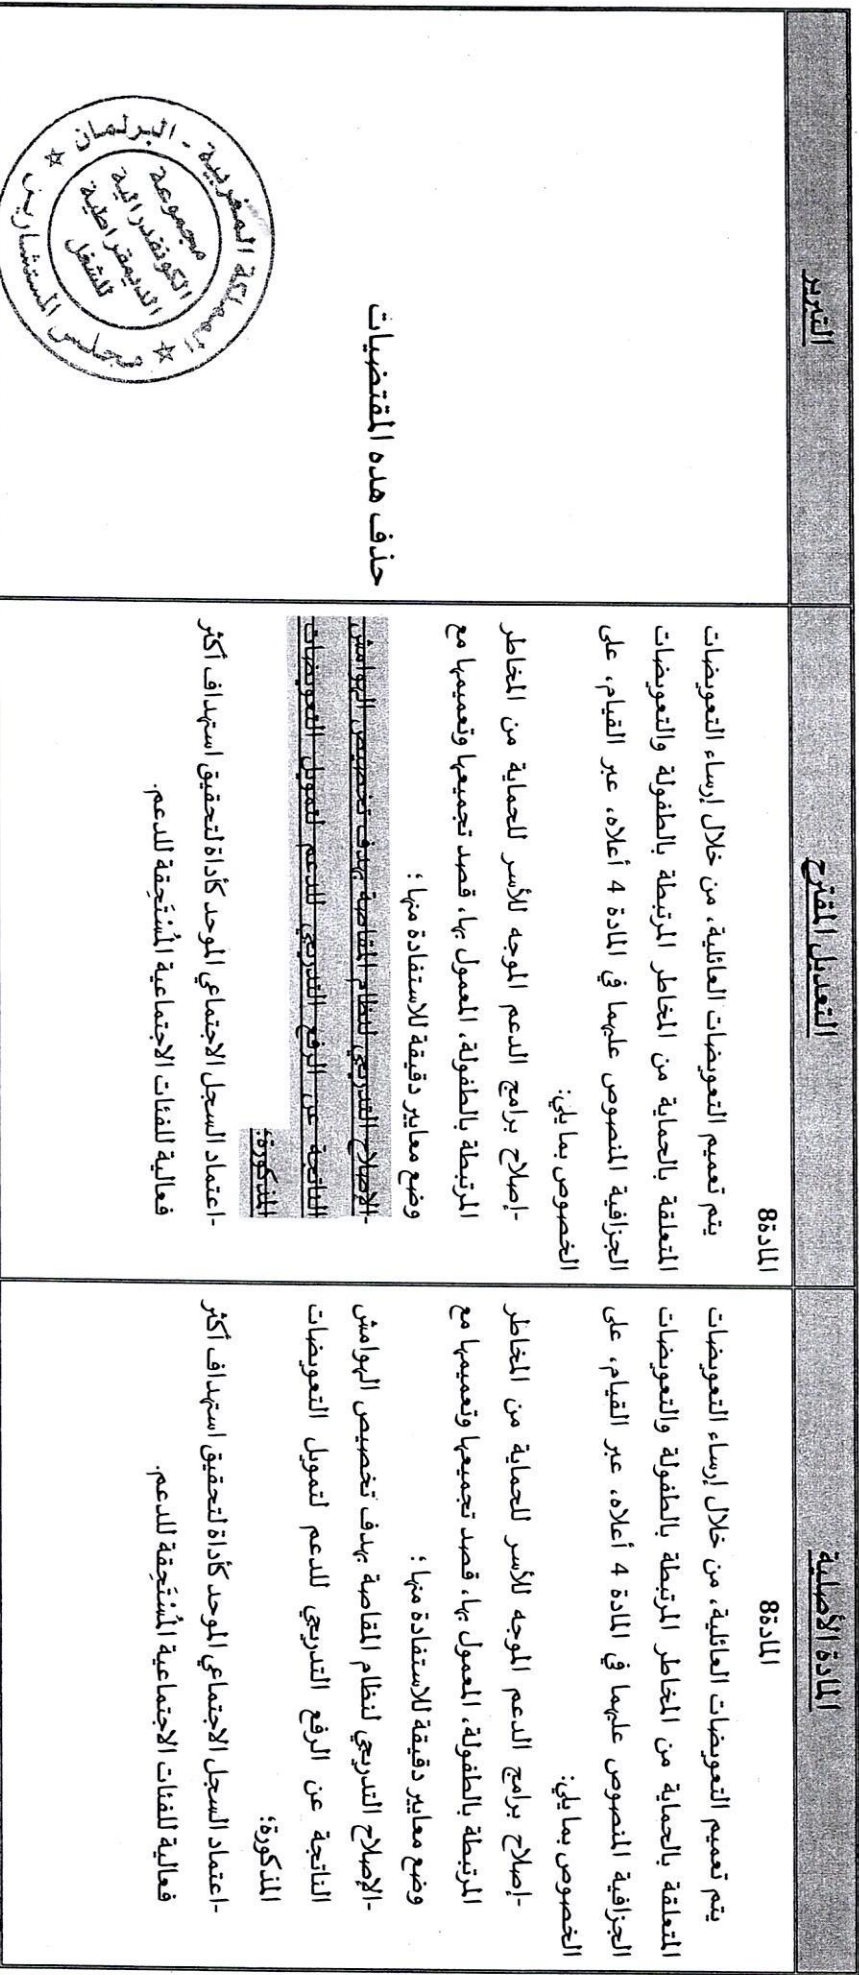 المادة الأصلية
المادة8
يتم تعميم التعويضات العائلية، من خلال إرساء التعويضات
المتعلقة بالحماية من المخاطر المرتبطة بالطفولة والتعويضات
الجزافية المنصوص عليهما في المادة 4 أعلاه، عبر القيام، على
الخصوص بما يلي:
-إصلاح برامج الدعم الموجه للأسر للحماية من المخاطر
المرتبطة بالطفولة، المعمول بها، قصد تجميعها وتعميمها مع
وضع معايير دقيقة للاستفادة منها ؛
-الإصلاح التدريجي لنظام المقاصة بهدف تخصيص الهوامش
الناتجة عن الرفع التدريجي للدعم لتمويل التعويضات
المذكورة؛
-اعتماد السجل الاجتماعي الموحد كأداة لتحقيق استهداف أكثر
فعالية للفئات الاجتماعية المُسْتَحِقة للدعم.
التعديل المقترح
المادة8
يتم تعميم التعويضات العائلية، من خلال إرساء التعويضات
المتعلقة بالحماية من المخاطر المرتبطة بالطفولة والتعويضات
الجزافية المنصوص عليهما في المادة 4 أعلاه، عبر القيام، على
الخصوص بما يلي:
-إصلاح برامج الدعم الموجه للأسر للحماية من المخاطر
المرتبطة بالطفولة، المعمول بها، قصد تجميعها وتعميمها مع
وضع معايير دقيقة للاستفادة منها ؛
-الإصلاح التدريجي لنظام المقاصة بهدف تخصيص الهوامش
الناتجة عن الرفع التدريجي للدعم لتمويل التعويضات
المذكورة؛
-اعتماد السجل الاجتماعي الموحد كأداة لتحقيق استهداف أكثر
فعالية للفئات الاجتماعية المُسْتَحِقة للدعم.
التبرير
حذف هده المقتضيات
المملكة المغربية - البرلمان
مجلس المستشارين
مجموعة
الكونفدرالية
الديمقراطية
للشغل